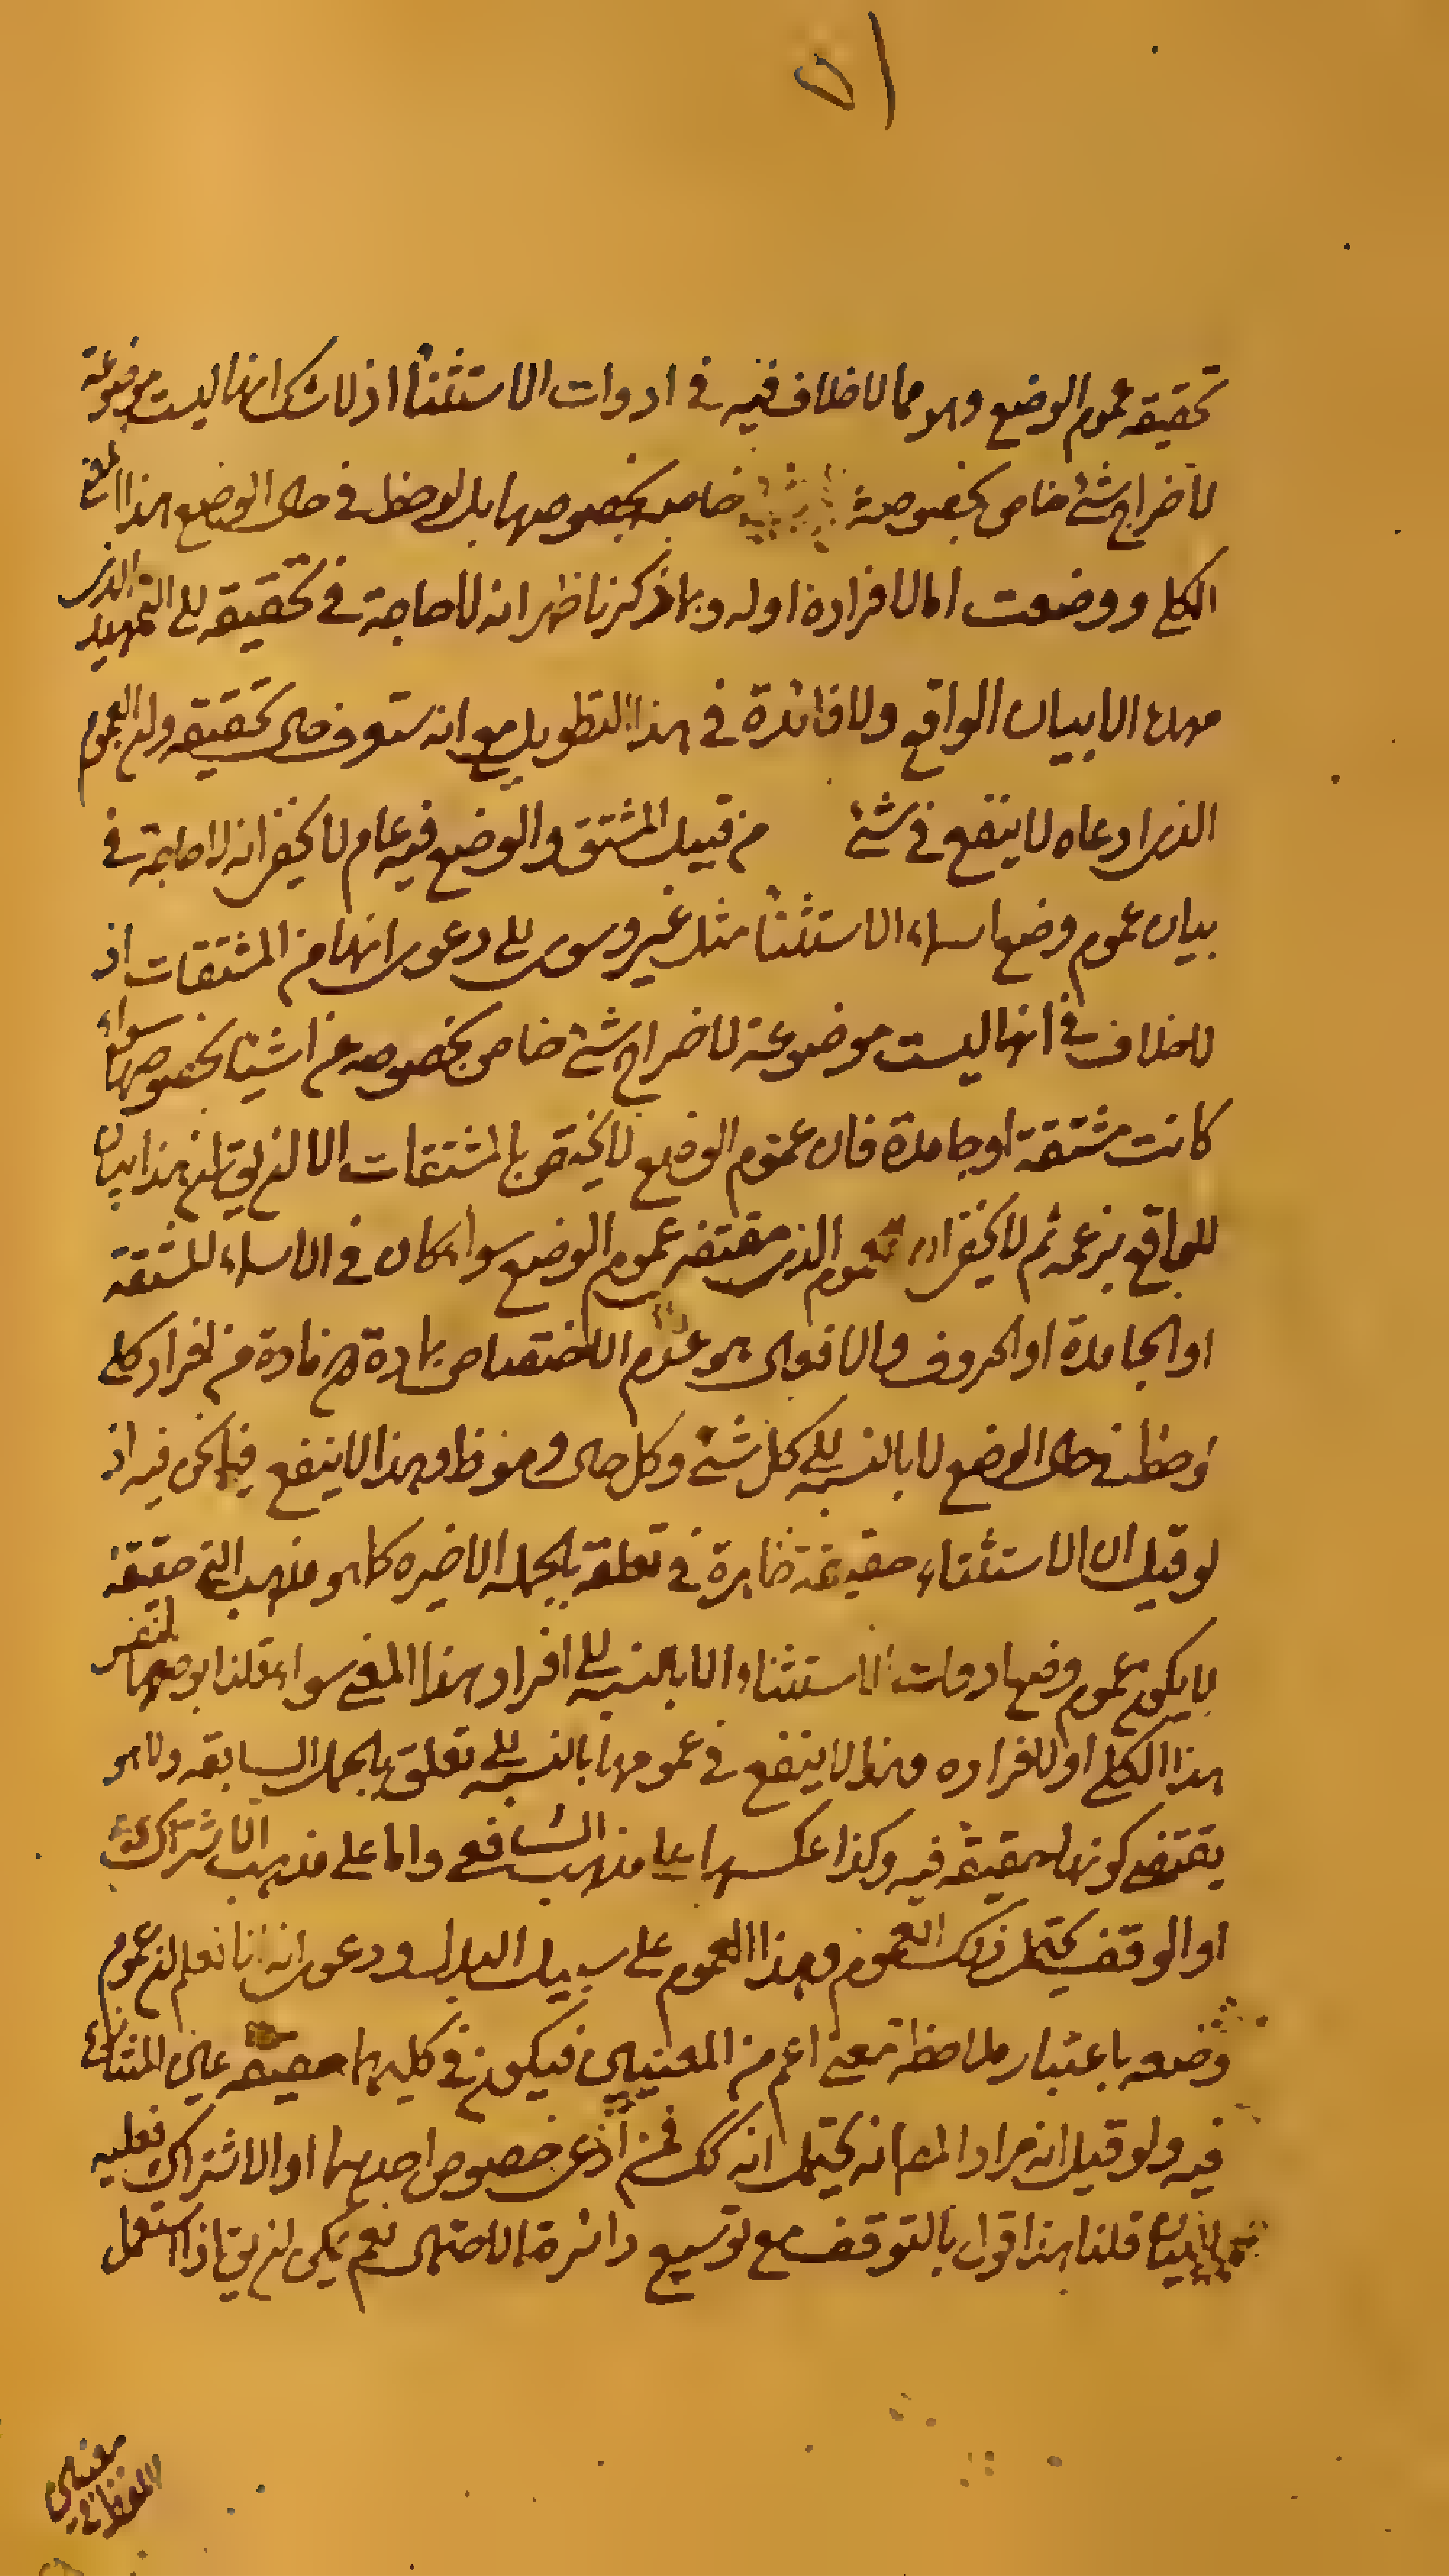 تحقيقه عموم الوضع وهو مما لا خلاف فيه في ادوات الاستثنا اذ لا شك انها ليست موضوعة
لاخراج شئ خاص بخصوصه خاصه بخصوصها بل لوحظ في حال الوضع هذا المعنى
الكلي ووضعت اما لافراده او له وبما ذكرنا ظهر انه لا حاجة في تحقيقه الى التمهيد الذي
مهده الا بيان الواقع ولا فائدة في هذا التطويل مع انه ستعرف حال تحقيقه وان العموم
الذي ادعاه لا ينفع في شئ من قبيل المشتق والوضع فيه عام لا يخفى انه لا حاجة في
بيان عموم وضع اسماء الاستثنا مثل غير وسوى الى دعوى انها من المشتقات اذ
لا خلاف في انها ليست موضوعة لاخراج شئ خاص بخصوصه عن اشيا بخصوصها سواء
كانت مشتقة او جامدة فان عموم الوضع لا يختص بالمشتقات الا ان يق ان هذا بيان
للواقع بزعمه ثم لا يخفى ان العموم الذي مقتضى عموم الوضع سواء كان في الاسماء المشتقة
او الجامدة او الحروف والافعال هو عدم الاختصاص بمادة دون مادة من افراد كلي
لوحظ في حال الوضع لا بالنسبة الى كل شئ وكل حال وهو ظ وهذا لا ينفع فيما نحن فيه اذ
لو قيل ان الاستثناء حقيقة ظاهرة في تعلقه بالجملة الاخيره كما هو مذهب ابي حنيفة
لا يكون عموم وضع ادوات الاستثناء الا بالنسبه الى افراد هذا المعنى سواء قلنا بوضعها لنفس
هذا الكلي او لافراده وهذا لا ينفع في عمومها بالنسبة الى تعلق بالجمل السابقه ولا هو
يقتضي كونها حقيقة فيه وكذا عكسها على مذهب الشافعي واما على مذهب الاشتراك
او الوقف يحتمل ذلك العموم وهذا العموم على سبيل البدل ودعوى انا نعلم ان عموم
وضعه باعتبار ملاحظة معنى اعم من المعنيين فيكون في كليهما حقيقه عين المتنازع
فيه ولو قيل انه مراد المص انه يحتمل انه كك فمن ادعى خصوص احدهما او الاشتراك فعليه
البيان قلنا هذا قول بالتوقف مع توسيع دائرة الاحتمال نعم يمكن ان يق اذا استعمل